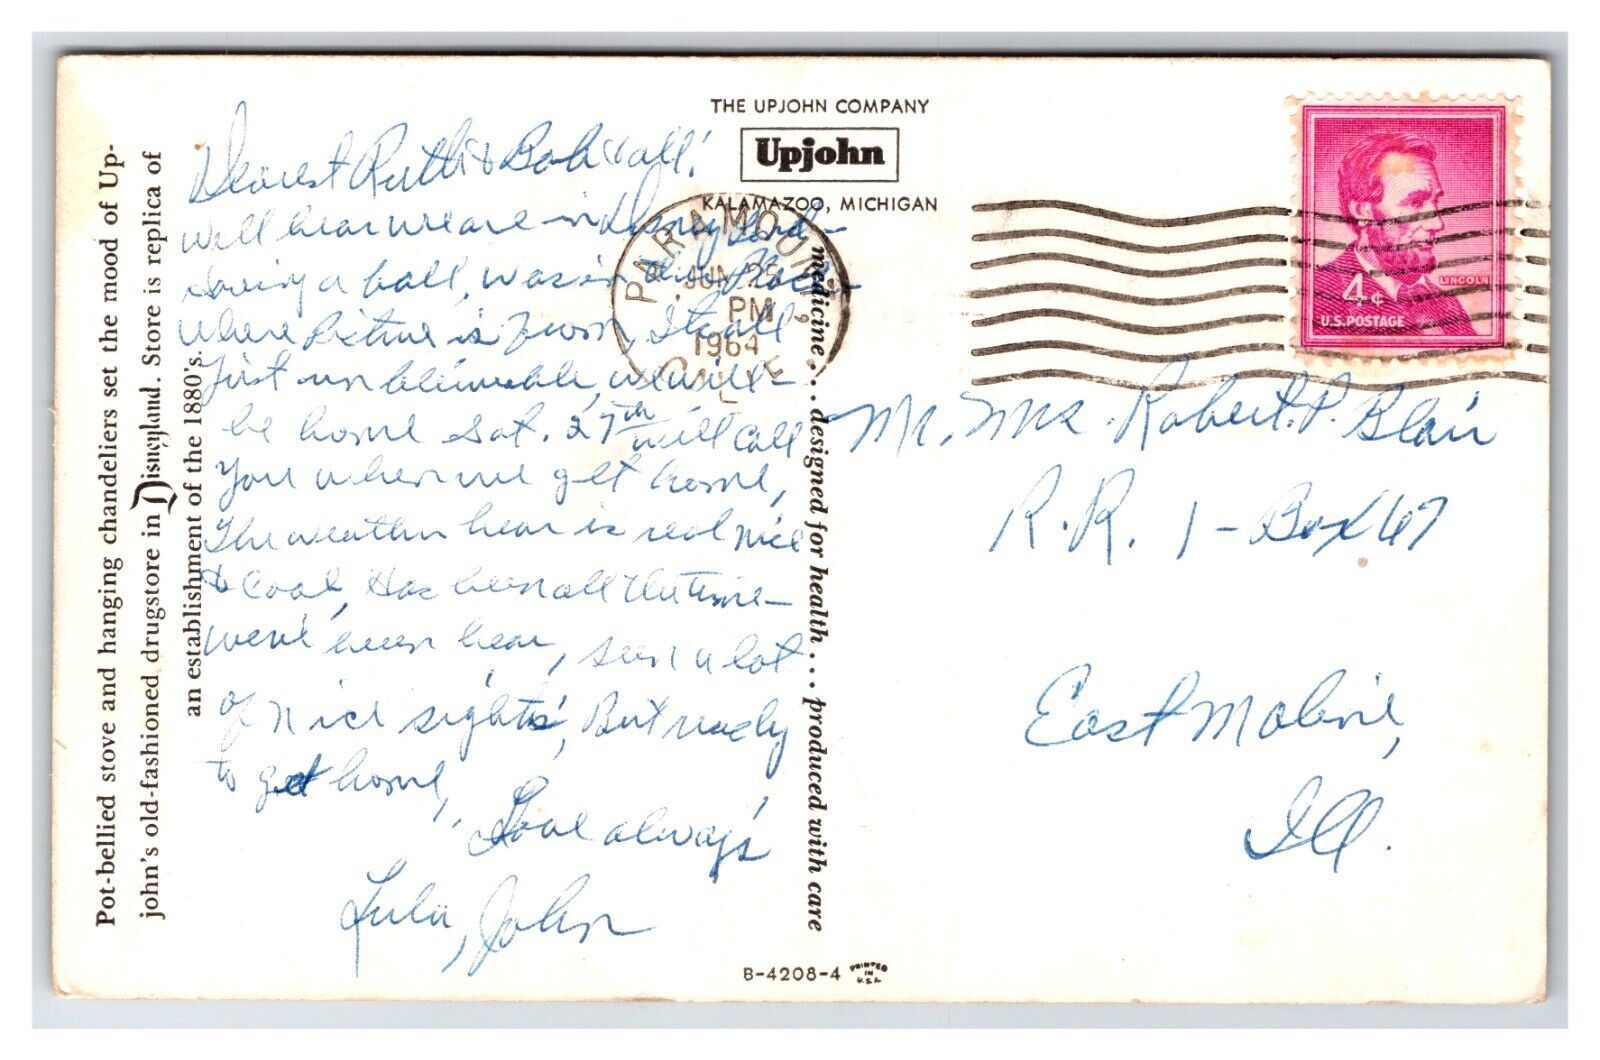 Pot-bellied stove and hanging chandeliers set the mood of Up-
john's old-fashioned drugstore in Disneyland. Store is replica of
an establishment of the 1880's.
THE UPJOHN COMPANY
Upjohn
KALAMAZOO, MICHIGAN
PARAMOUNT
JUN 25
PM
1964
CALIF
LINCOLN
4¢
U.S. POSTAGE
Dearest Ruth & Bob & all!
Well hear we are in Disney Land –
having a ball, was in this Place
where Picture is
Just unbelievable, we will
be home Sat. 27th will call
you when we get home,
The weather hear is real nice
& cool, Has been all the time
were been hear, seen a lot
of nice sights, But ready
to get home,
Love always
Lula, John
medicine... designed for health... produced with care
Mr. Mrs. Robert P. Blair
R.R. 1 – Box 67
East Moline,
Ill.
B-4208-4
PRINTED
IN
U.S.A.